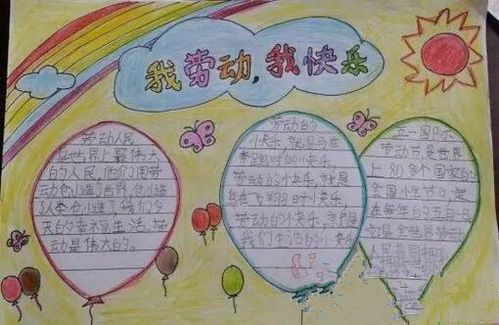 我劳动,我快乐
劳动人民
是世界上最伟大
的人民,他们用劳
动创造了世界,创造
了人类,创造了我们今
天的幸福生活。劳
动是伟大的。
劳动的
快乐,就是马在
奔跑时的快乐。
劳动的快乐,就是
鸟在飞翔时快乐。
劳动的快乐,就是
我们生活的快乐
五一国际
劳动节,是世界
上80多个国家的
全国性节日。定
在每年的五月一日。
它是全世界劳动
人民共同拥有